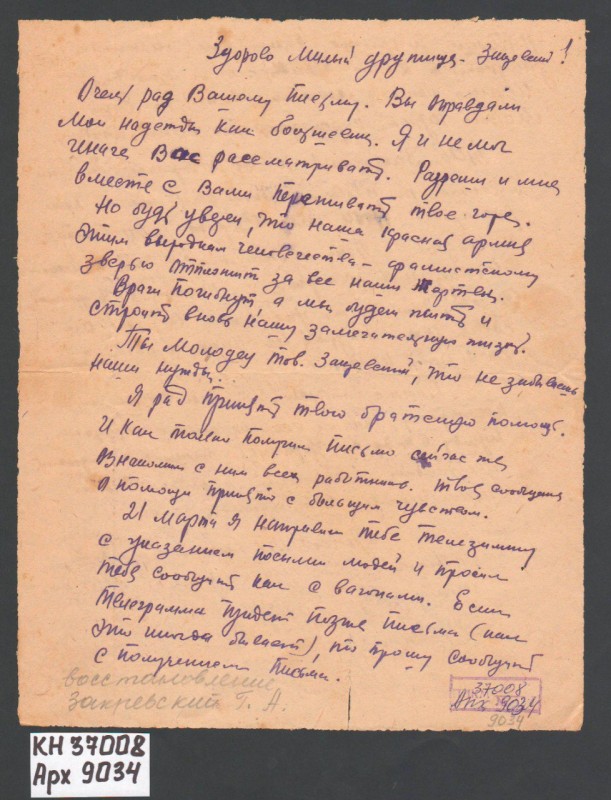 Здорово милый дружище - Защевский!
Очень рад Вашему письму. Вы оправдали
мои надежды как большевик. Я и не мог
иначе Вас рассматривать. Разреши и мне
вместе с Вами переживать твое горе.
Но будь уверен, что наша красная армия
этим выродкам человечества - фашистскому
зверью отомстит за все наши жертвы.
Враги погибнут, а мы будем жить и
строить вновь нашу замечательную жизнь.
Ты молодец тов. Защевский, что не забываешь
наши нужды.
Я рад принять твою братскую помощь.
И как только получил письмо сейчас же
ознакомил с ним всех работников. Твое сообщение
о помощи принято с большим чувством.
21 марта я направил тебе телеграмму
с указанием посылки людей и просил
тебя сообщить как с вагонами. Если
телеграмма придет позже письма (как
это иногда бывает), то прошу сообщить
с получением письма.
восстановление
Закревский Г. А.
37008
Арх 9034
9034
КН 37008
Арх 9034